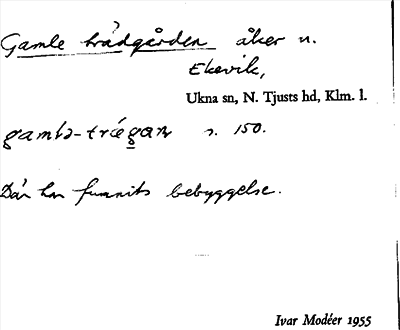 Gamle trädgården åker n.
Ekevik,
Ukna sn, N. Tjusts hd, Klm. l.
s. 150.
Där har funnits bebyggelse.
Ivar Modéer 1955